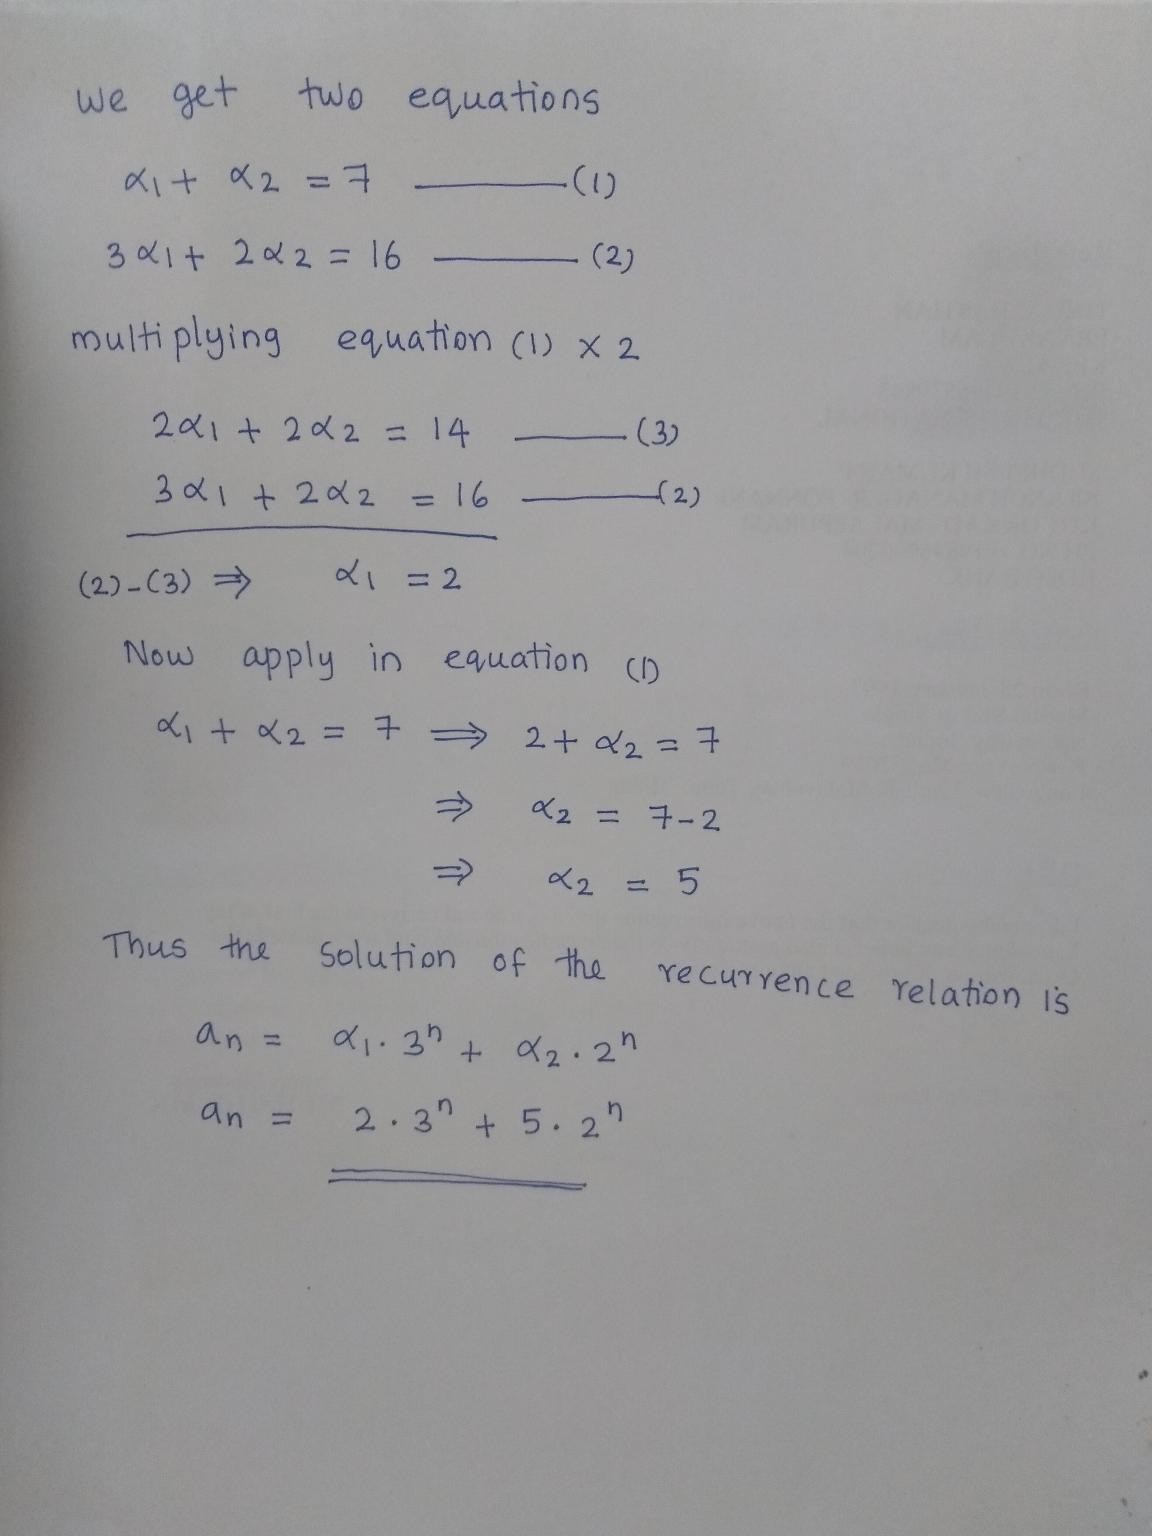 we get two equations
α1 + α2 = 7 ——— (1)
3α1 + 2α2 = 16 ——— (2)
multiplying equation (1) × 2
2α1 + 2α2 = 14 ——— (3)
3α1 + 2α2 = 16 ——— (2)
(2)-(3) ⇒ α1 = 2
Now apply in equation (1)
α1 + α2 = 7 ⇒ 2 + α2 = 7
⇒ α2 = 7-2
⇒ α2 = 5
Thus the solution of the recurrence relation is
an = α1 · 3ⁿ + α2 · 2ⁿ
an = 2 · 3ⁿ + 5 · 2ⁿ